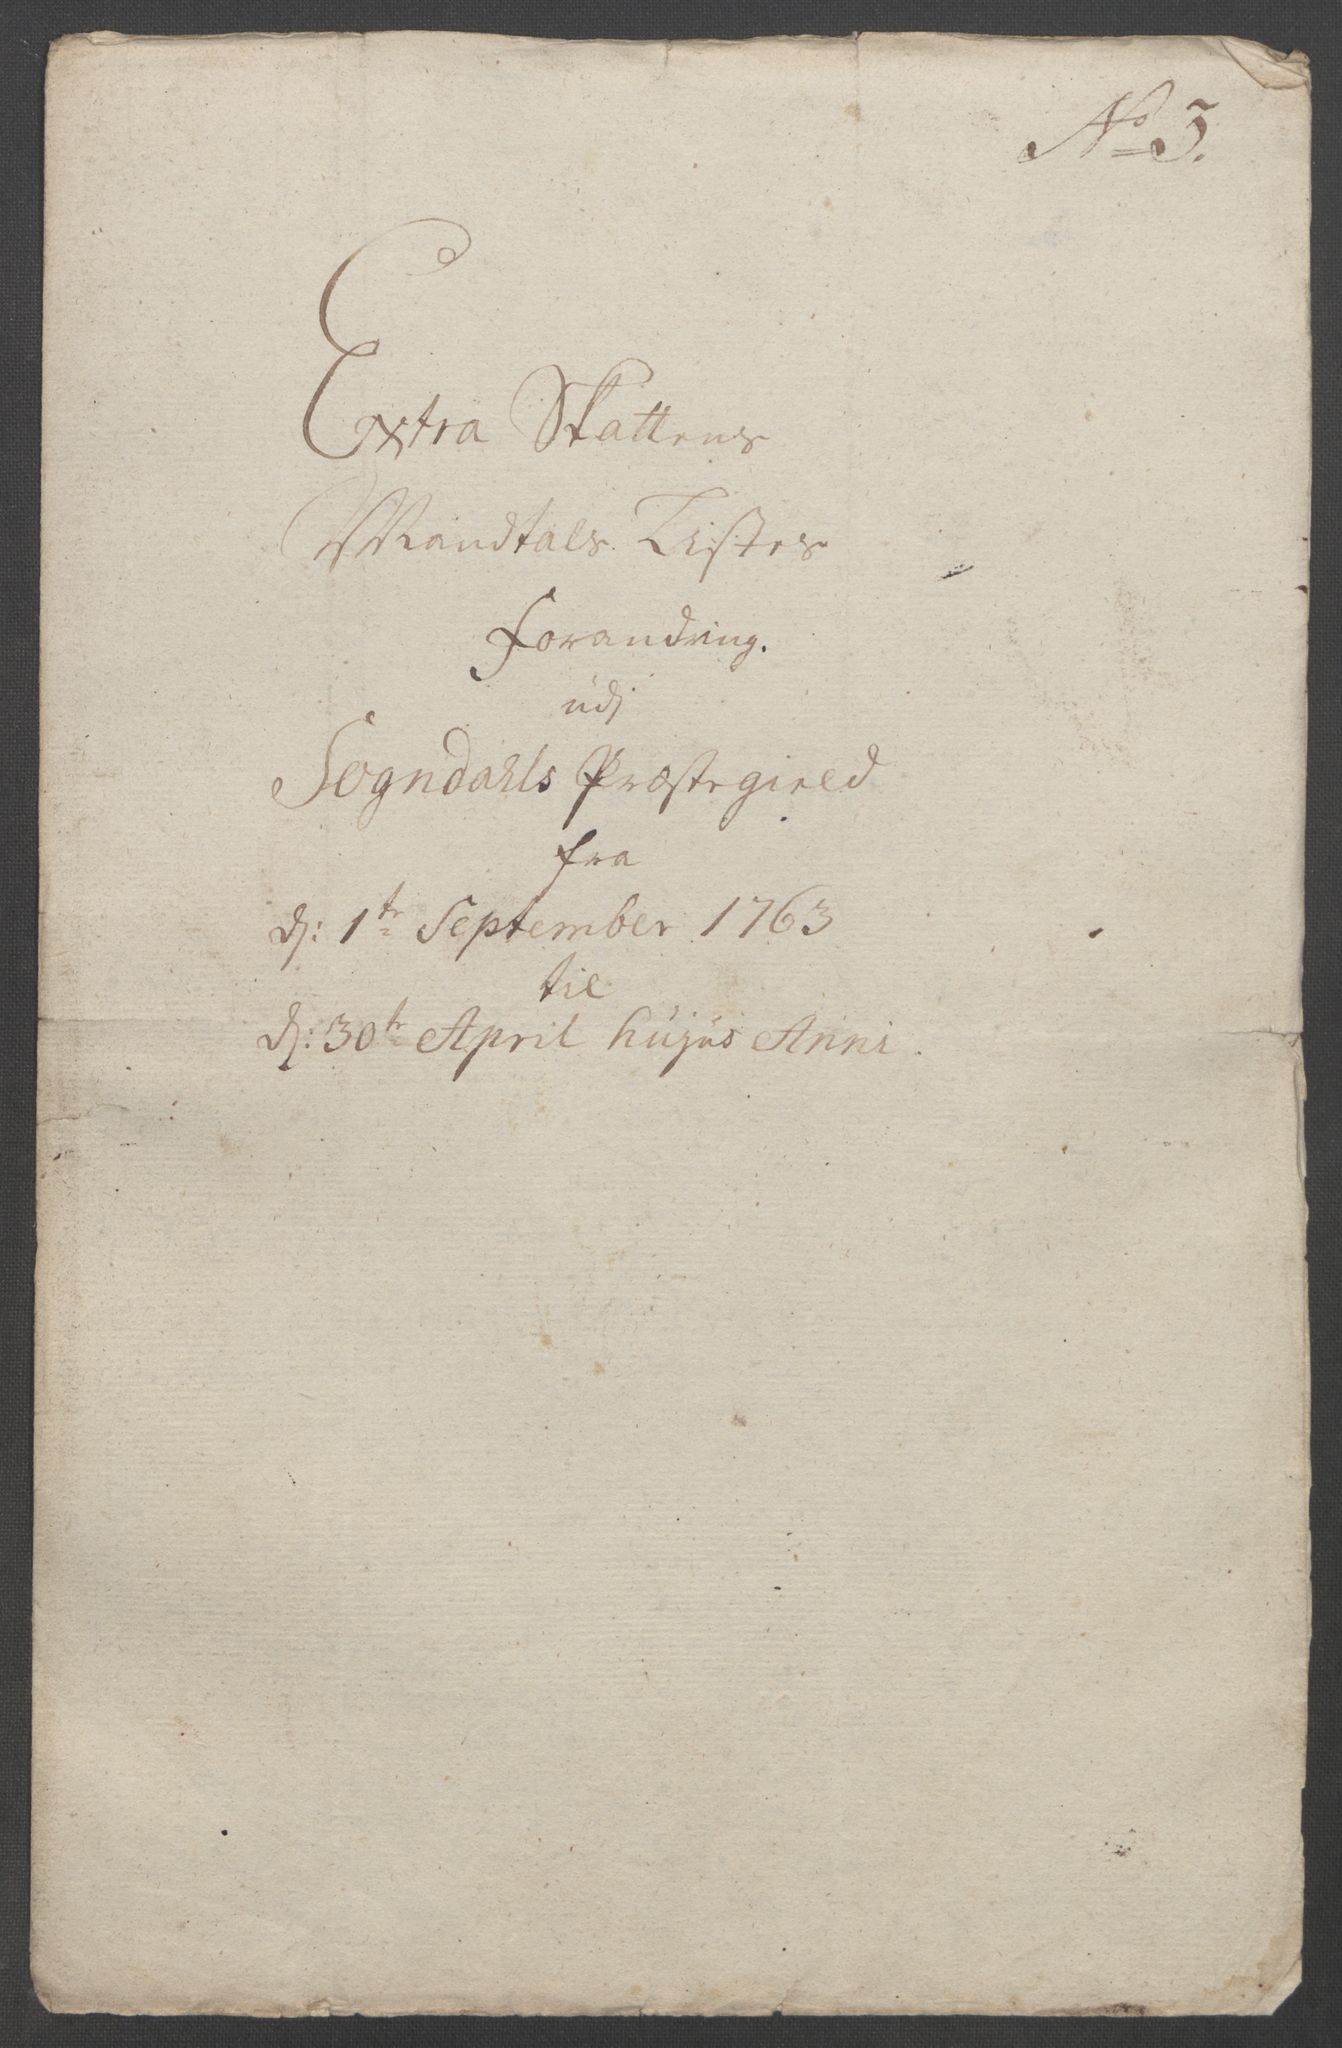 No 3.
Extra Skattens
Mandtals Listes
forandring.
udj
Sogndahls Præstegield
fra
d: 1te September 1763
til
d: 30te April hujus Anni.